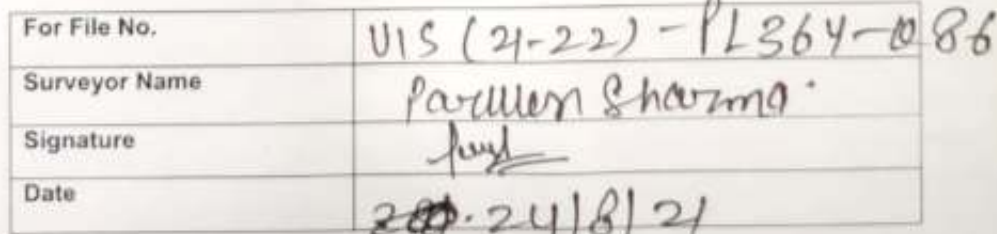 For File No. VIS (21-22) - PL364-086
Surveyor Name Parveen Sharma.
Signature
Date 24/8/21